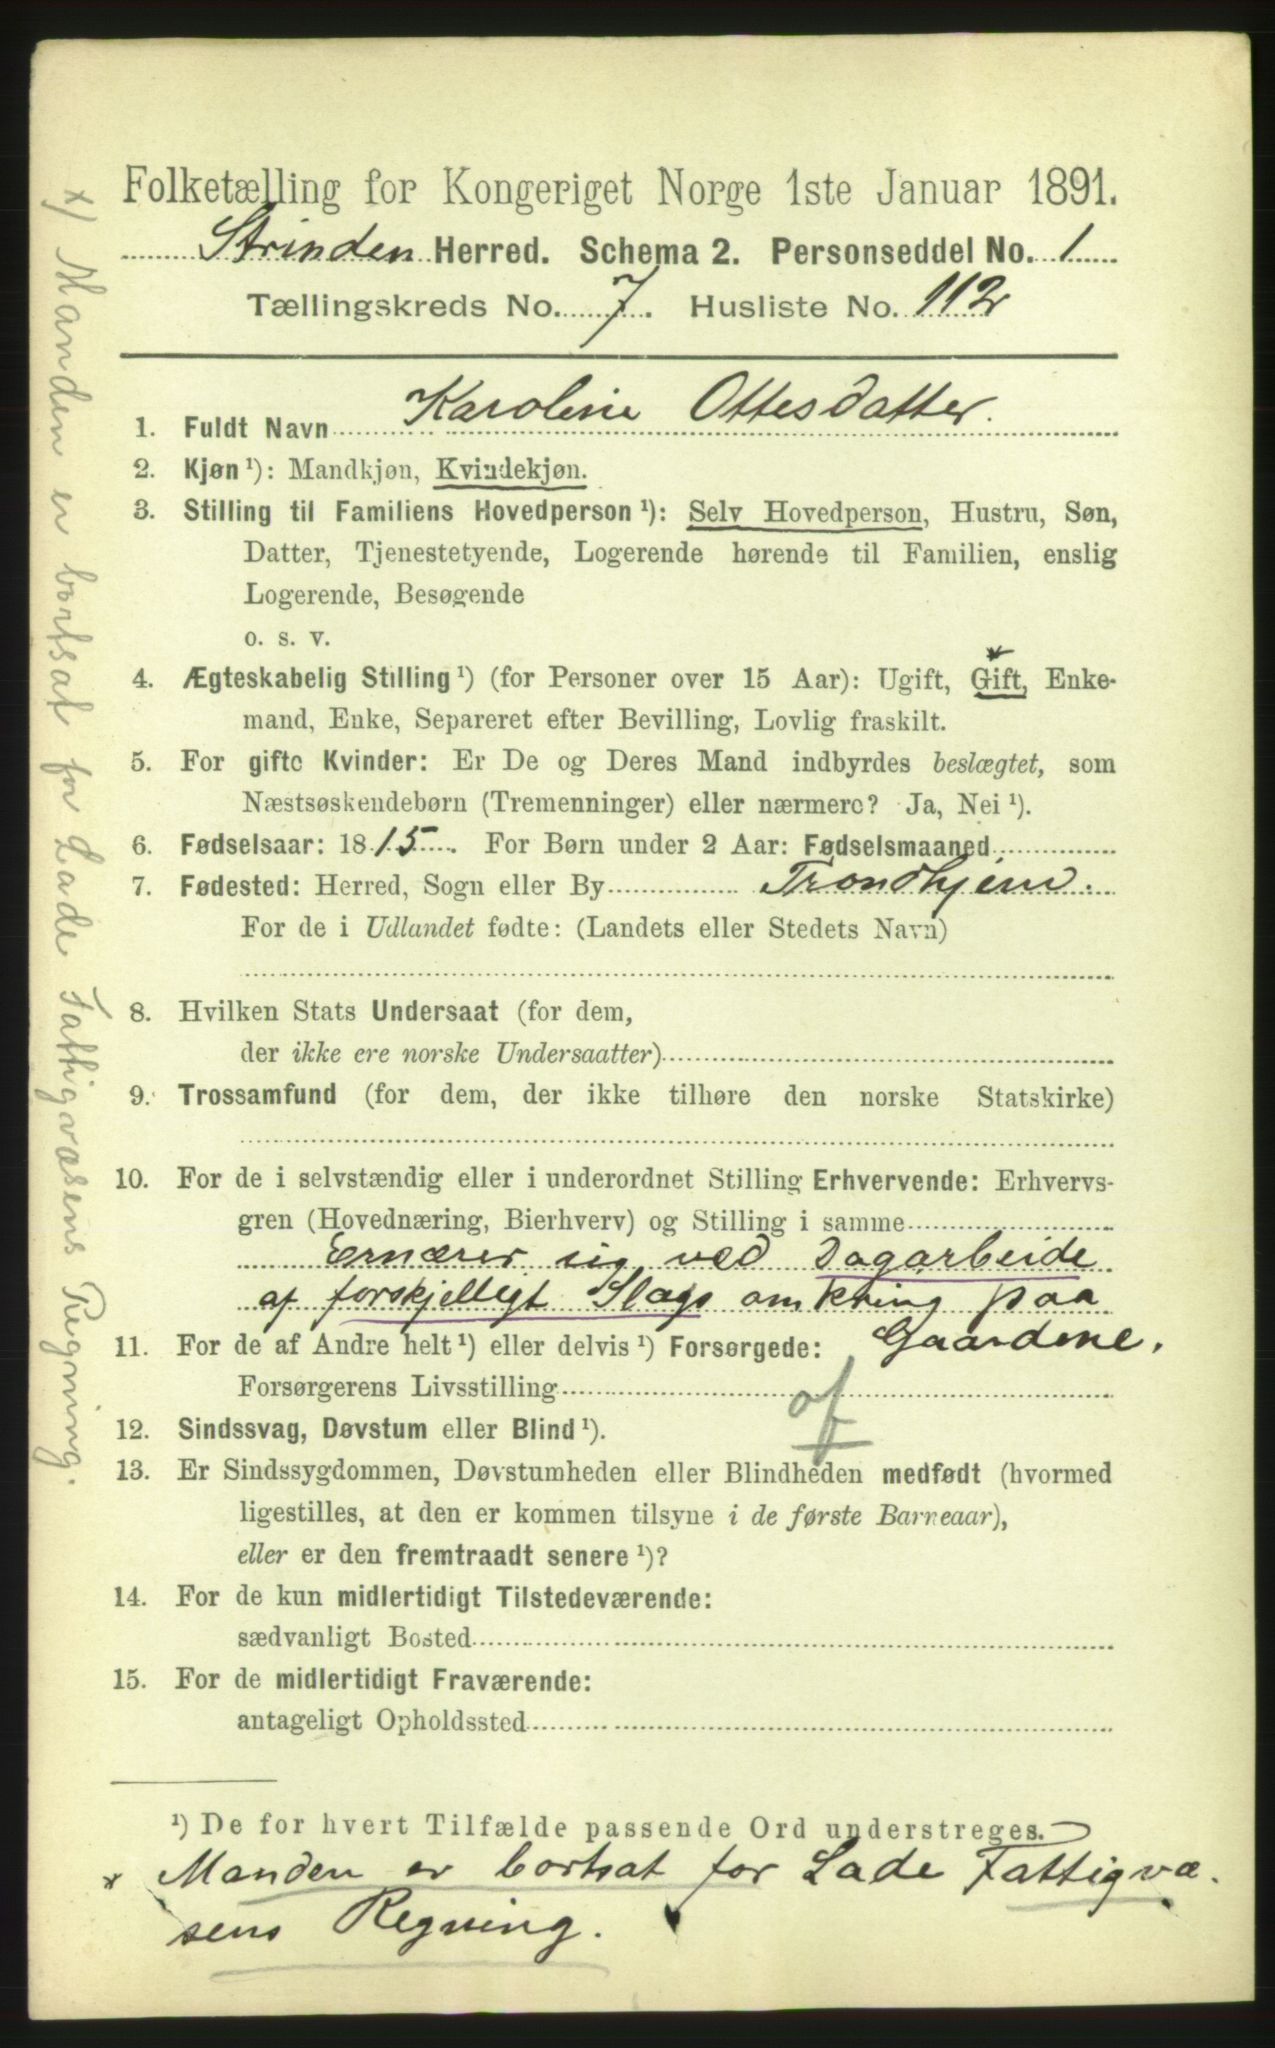 Folketælling for Kongeriget Norge 1ste Januar 1891.
Strinden Herred. Schema 2. Personseddel No. 1
Tællingskreds No. 7. Husliste No. 112
1. Fuldt Navn Karoline Ottesdatter.
2. Kjøn ¹): Mandkjøn, Kvindekjøn.
3. Stilling til Familiens Hovedperson ¹): Selv Hovedperson, Hustru, Søn,
Datter, Tjenestetyende, Logerende hørende til Familien, enslig
Logerende, Besøgende
o. s. v.
*
4. Ægteskabelig Stilling ¹) (for Personer over 15 Aar): Ugift, Gift, Enke-
mand, Enke, Separeret efter Bevilling, Lovlig fraskilt.
5. For gifte Kvinder: Er De og Deres Mand indbyrdes beslægtet, som
Næstsøskendebørn (Tremenninger) eller nærmere? Ja, Nei ¹).
6. Fødselsaar: 1815. For Børn under 2 Aar: Fødselsmaaned
7. Fødested: Herred, Sogn eller By Trondhjem.
For de i Udlandet fødte: (Landets eller Stedets Navn)
8. Hvilken Stats Undersaat (for dem,
der ikke ere norske Undersaatter)
9. Trossamfund (for dem, der ikke tilhøre den norske Statskirke)
10. For de i selvstændig eller i underordnet Stilling Erhvervende: Erhvervs-
gren (Hovednæring, Bierhverv) og Stilling i samme
Ernærer sig ved Dagarbeide
af forskjelligt Slags omkring paa
Gaardene.
11. For de af Andre helt ¹) eller delvis ¹) Forsørgede:
Forsørgerens Livsstilling
of
12. Sindssvag, Døvstum eller Blind ¹).
13. Er Sindssygdommen, Døvstumheden eller Blindheden medfødt (hvormed
ligestilles, at den er kommen tilsyne i de første Barneaar),
eller er den fremtraadt senere ¹)?
14. For de kun midlertidigt Tilstedeværende:
sædvanligt Bosted
15. For de midlertidigt Fraværende:
antageligt Opholdssted
¹) De for hvert Tilfælde passende Ord understreges.
* Manden er bortsat for Lade Fattigvæ-
sens Regning.
x) Manden er bortsat for Lade Fattigvæsens Regning.